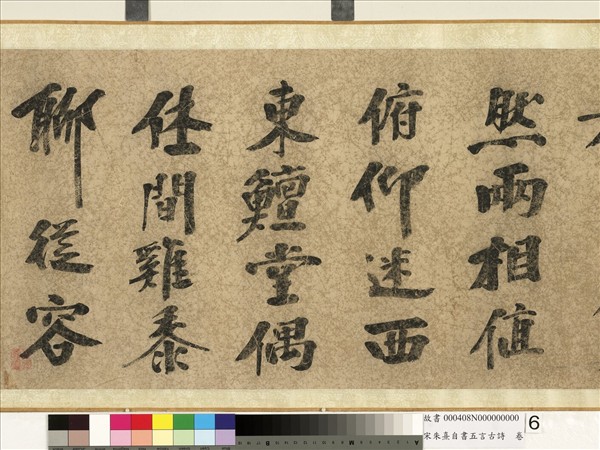 然兩相值
俯仰迷西
東鱣堂偶
休間雞黍
聊從容
故書 000408N000000000
宋朱熹自書五言古詩 卷
6